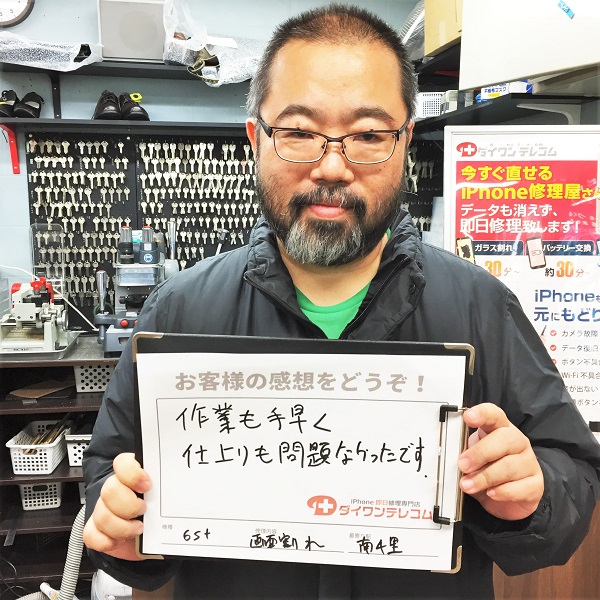 ダイワンテレコム
今すぐ直せる
iPhone修理屋さ
データも消えず、
即日修理致します!
ガラス割れ
バッテリー交換
30分~
約30分~
iPhoneも
元にもどり
カメラ故障
データ復旧
ボタン不具合
Wi-Fi 不具合
お客様の感想をどうぞ!
作業も手早く
仕上りも問題なかったです.
iPhone 即日修理専門店
ダイワンテレコム
機種
6s+
修理内容
画面割れ
最寄り駅
南千里